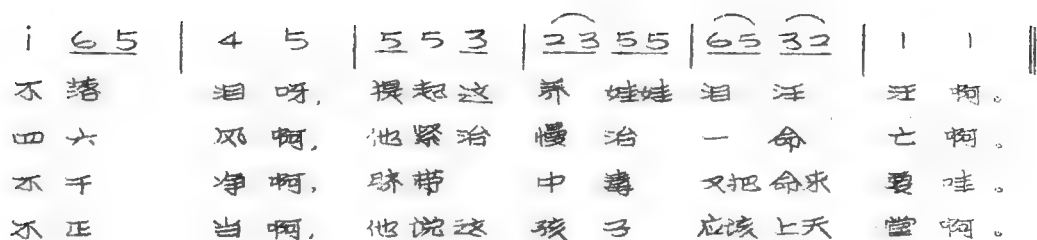 i 6 5 | 4 5 | 5 5 3 | 2 3 5 5 | 6 5 3 2 | 1 1 ‖
不落 泪呀, 提起这 养 娃娃 泪汪 汪啊。
四六 风啊, 他紧治 慢治 一命 亡啊。
不干 净啊, 脐带 中毒 又把命来 要哇。
不正 当啊, 他说这 孩子 应该上天 堂啊。